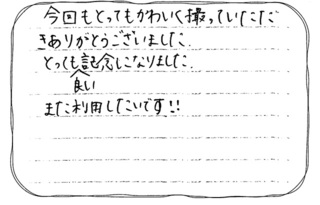 今回もとってもかわいく撮っていただ
きありがとうございました
とっても記念になりました
良い
また利用したいです!!